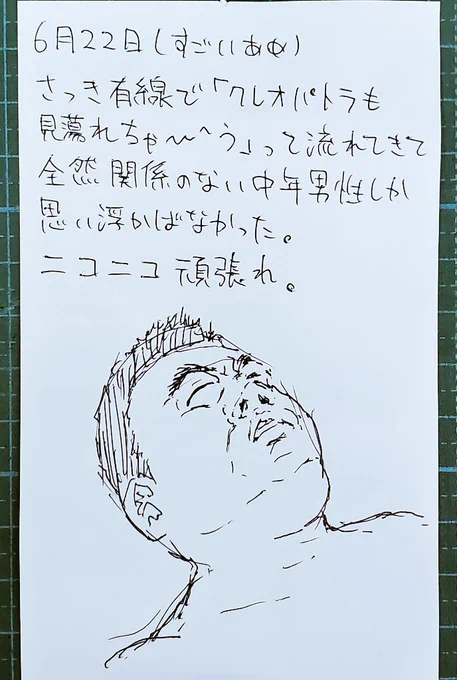 6月22日(すごいあめ)
さっき有線で「クレオパトラも
見蕩れちゃ〜〜う」って流れてきて
全然関係のない中年男性しか
思い浮かばなかった。
ニコニコ頑張れ。